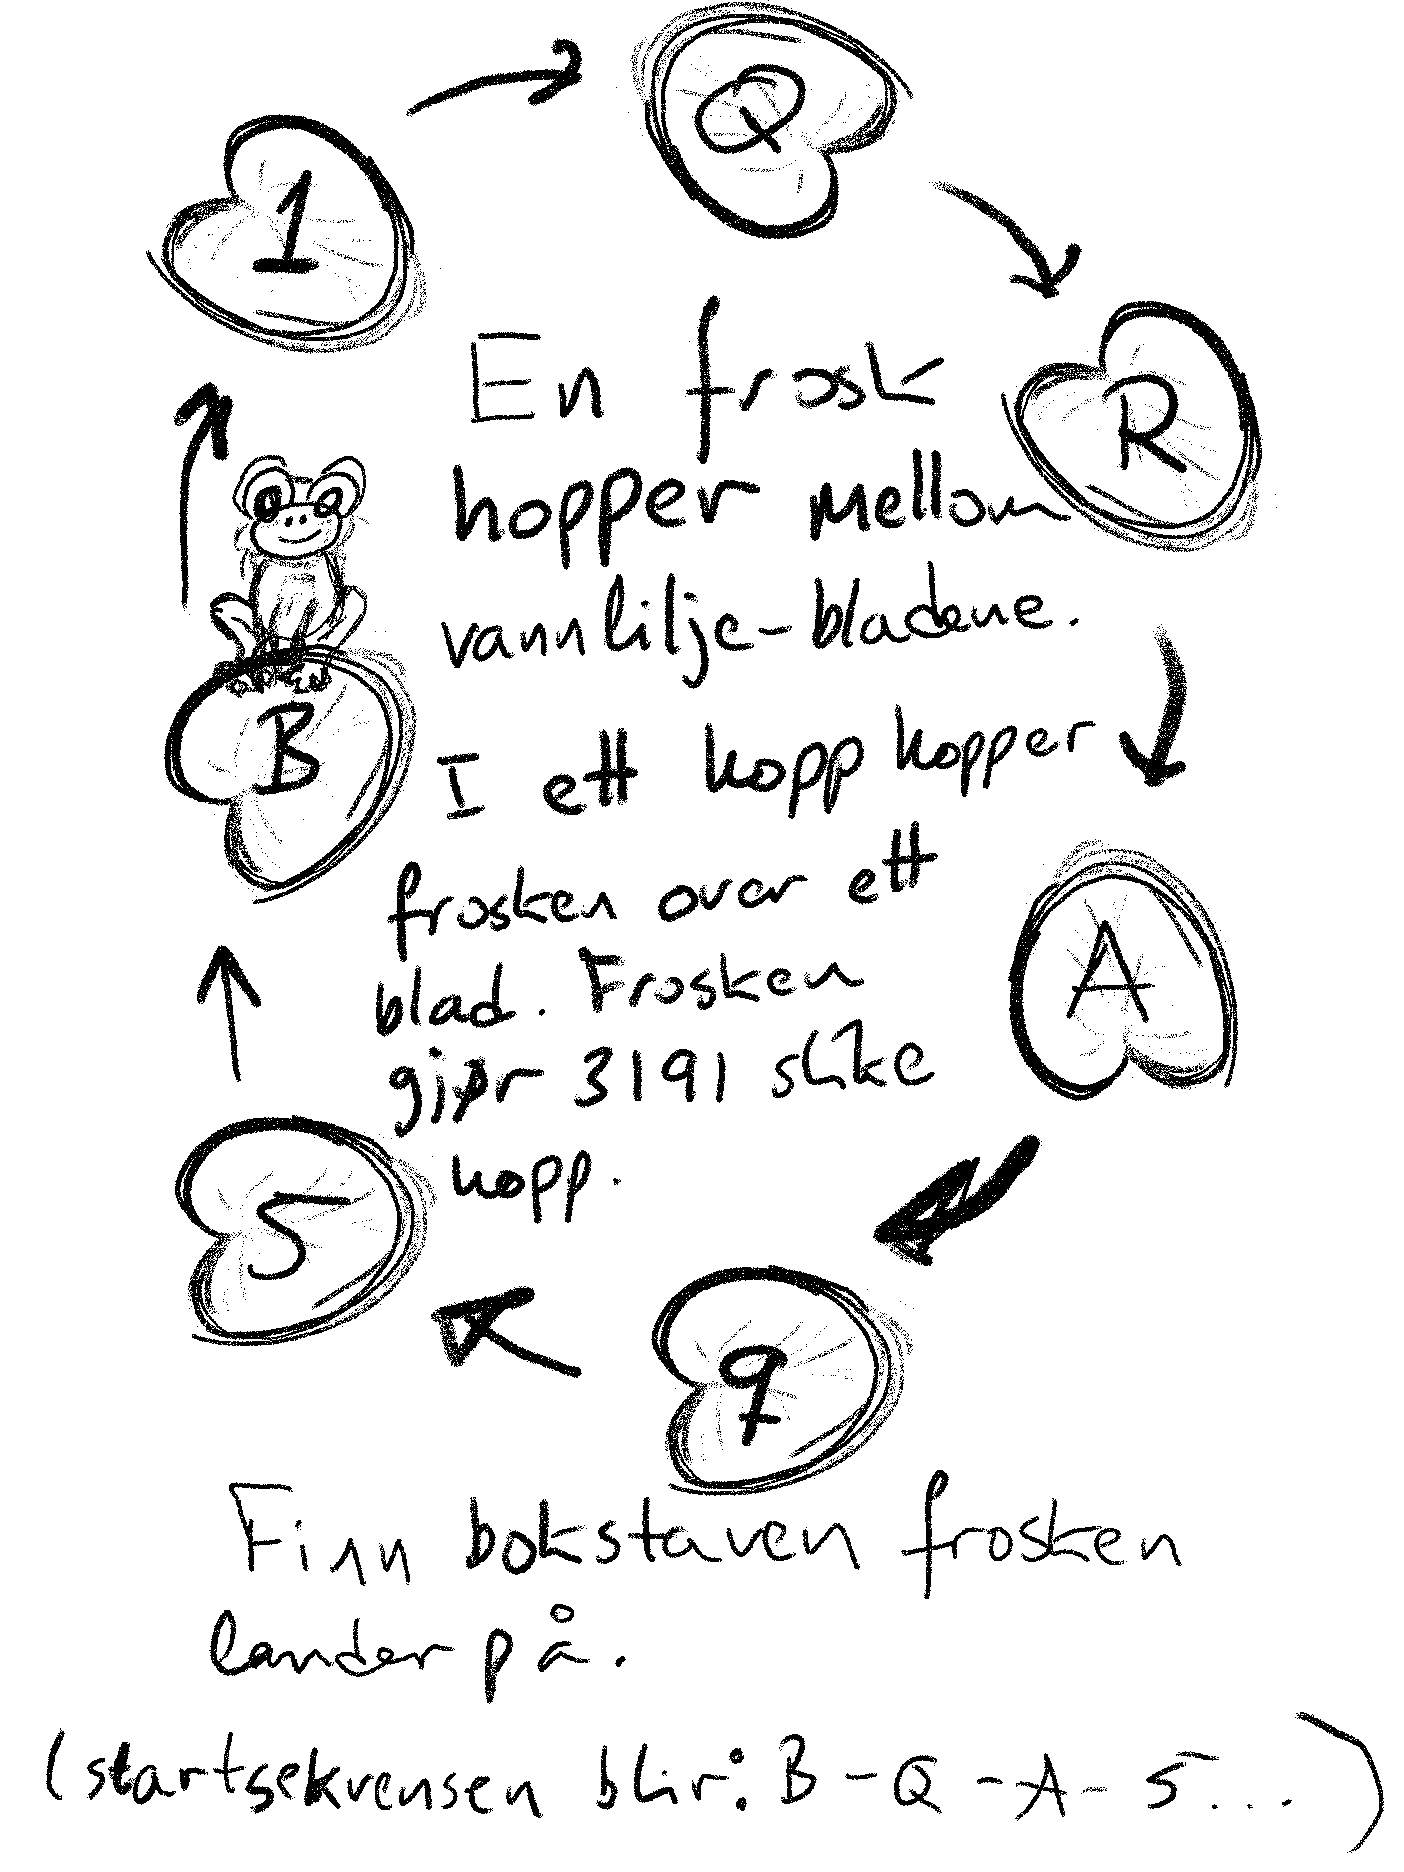 1
Q
R
En frosk
hopper mellom
vannlilje-bladene.
B
I ett hopp hopper
frosken over ett
blad. Frosken
gjør 3191 slike
hopp.
A
5
9
Finn bokstaven frosken
lander på.
(startsekvensen blir: B - Q - A - 5 ... )